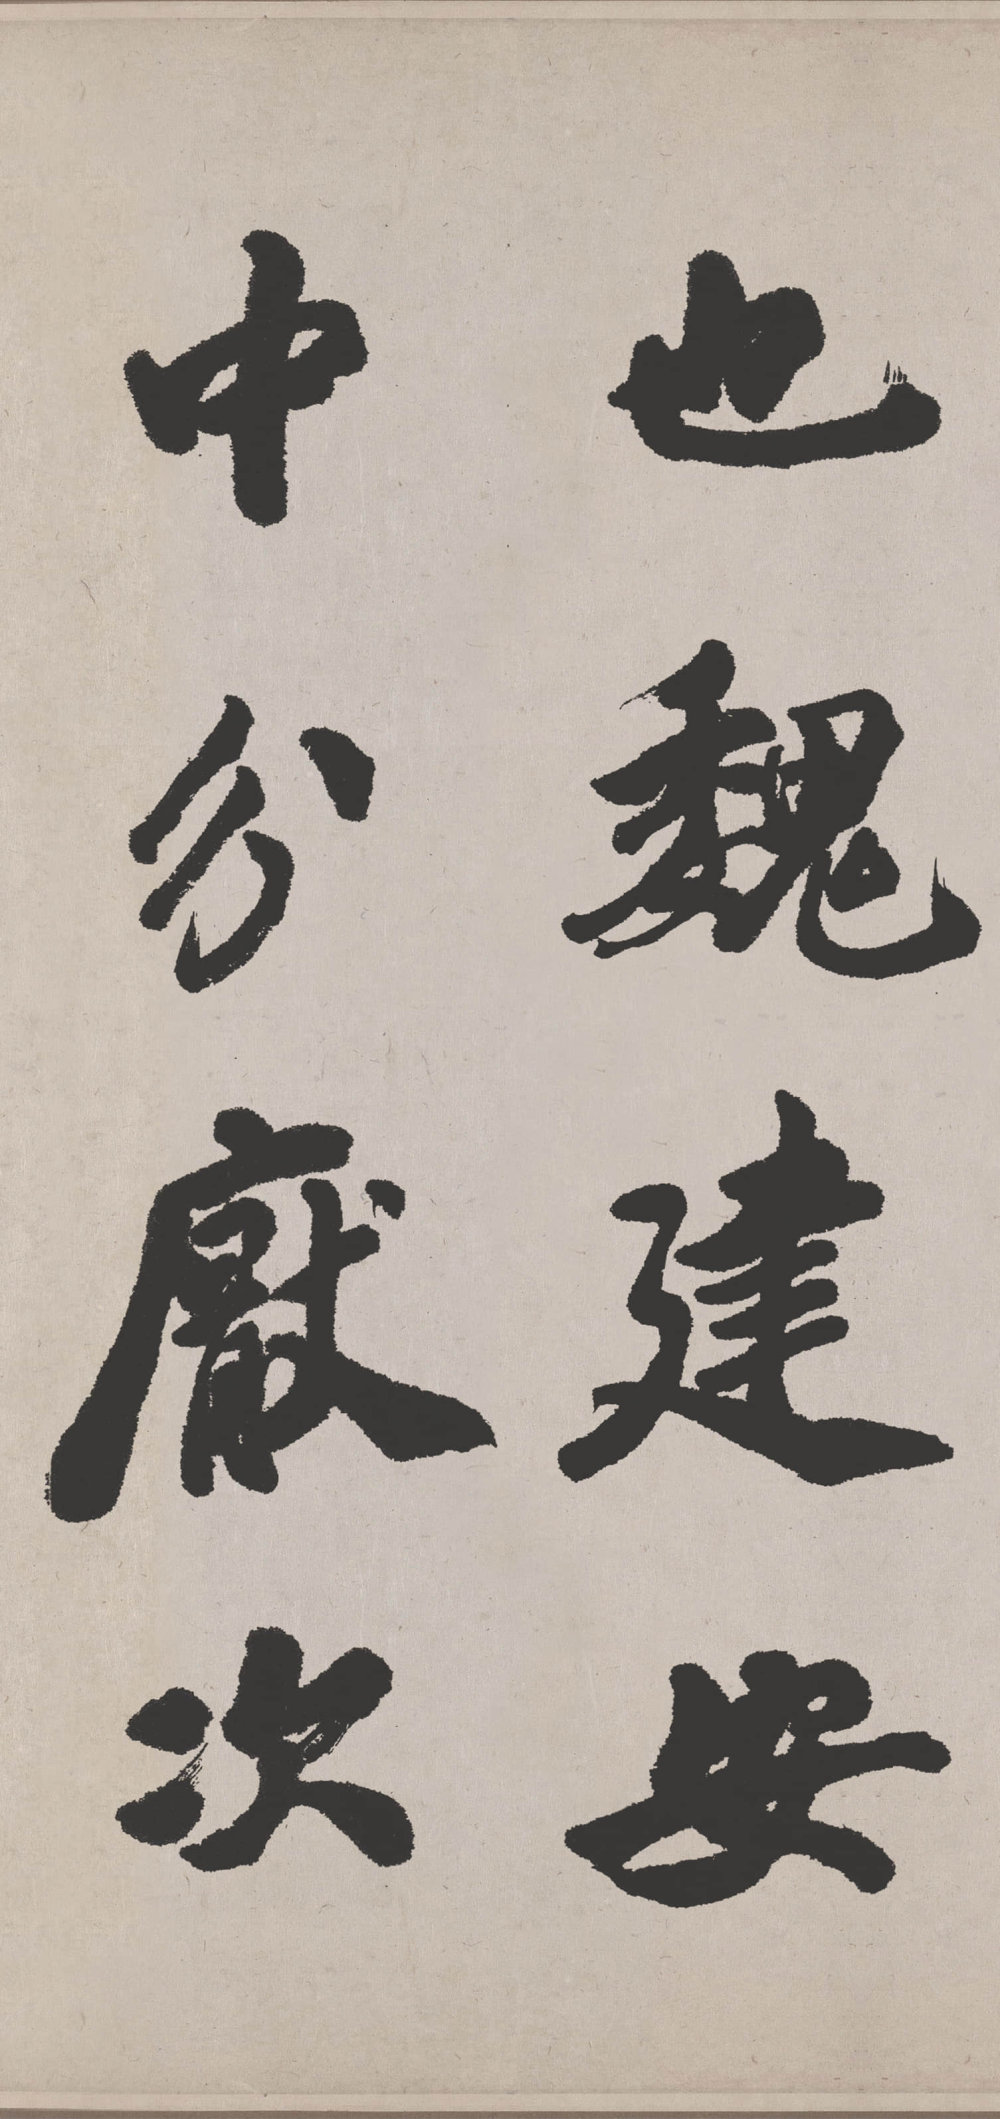 也魏建安
中分厥次